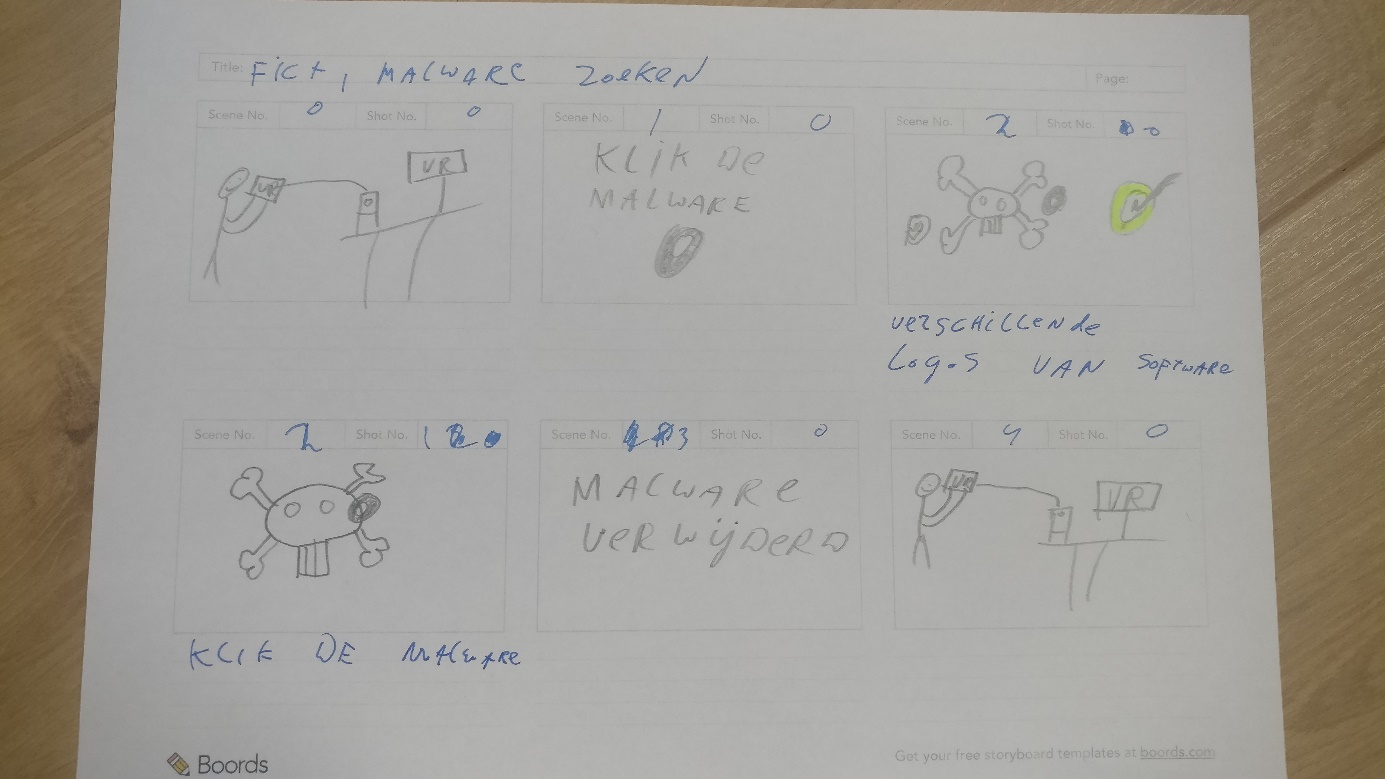 Title: Fict, MALWARE ZOEKEN Page:
Scene No. 0 Shot No. 0
VR VR
Scene No. 1 Shot No. 0
KLIK De
MALWARE
Scene No. 2 Shot No. 0
verschillende
Logos VAN Software
Scene No. 2 Shot No. 1
KLIK DE MALWARE
Scene No. 3 Shot No. 0
MALWARe
VeRWijDeRD
Scene No. 4 Shot No. 0
VR VR
Boords
Get your free storyboard templates at boords.com